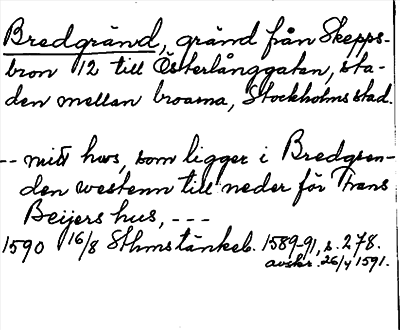 Bredgränd, gränd från Skepps-
bron 12 till Österlånggatan, sta-
den mellan broarna, Stockholms stad.
-- mitt hws, som ligger i Bredgren-
den westenn till neder för Frans
Beijers hus, ---
1590 16/8 Sthms tänkeb. 1589-91, s. 278.
avskr. 26/4 1591.